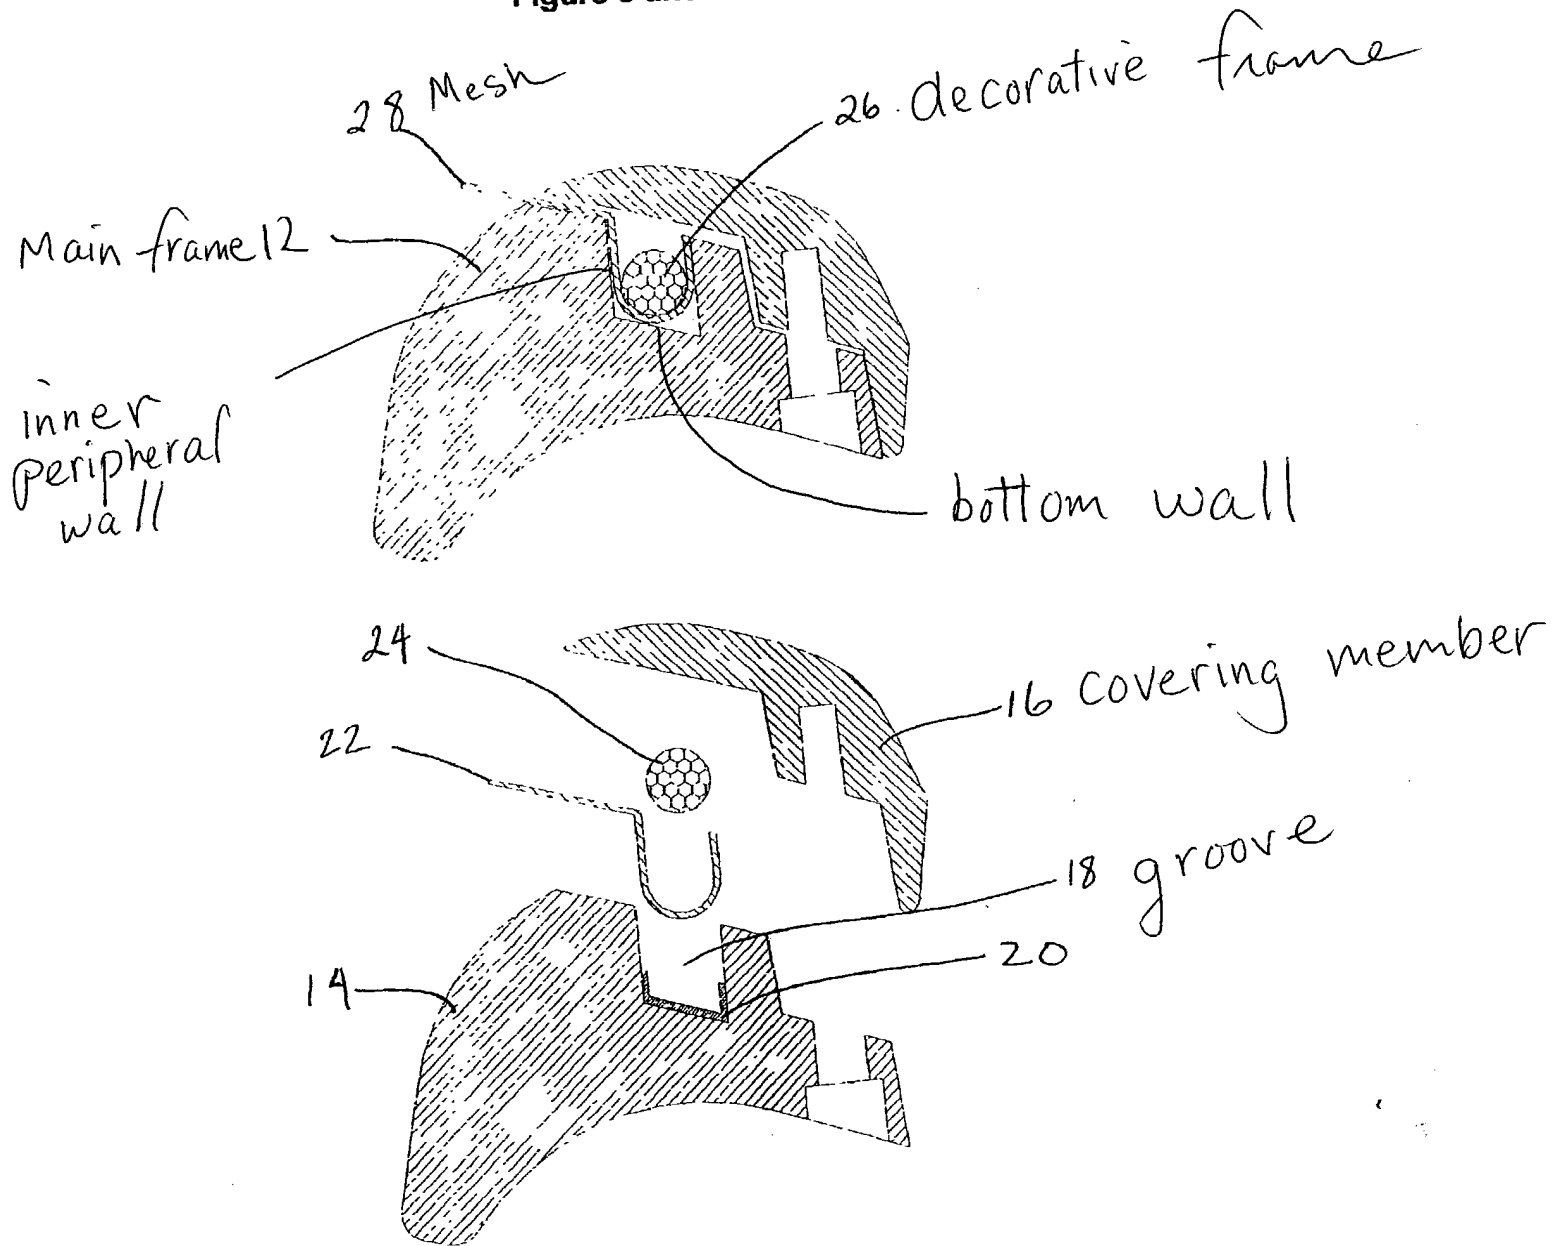 28 Mesh
26. decorative frame
Main frame 12
inner
peripheral
wall
bottom wall
24
16 covering member
22
18 groove
14
20